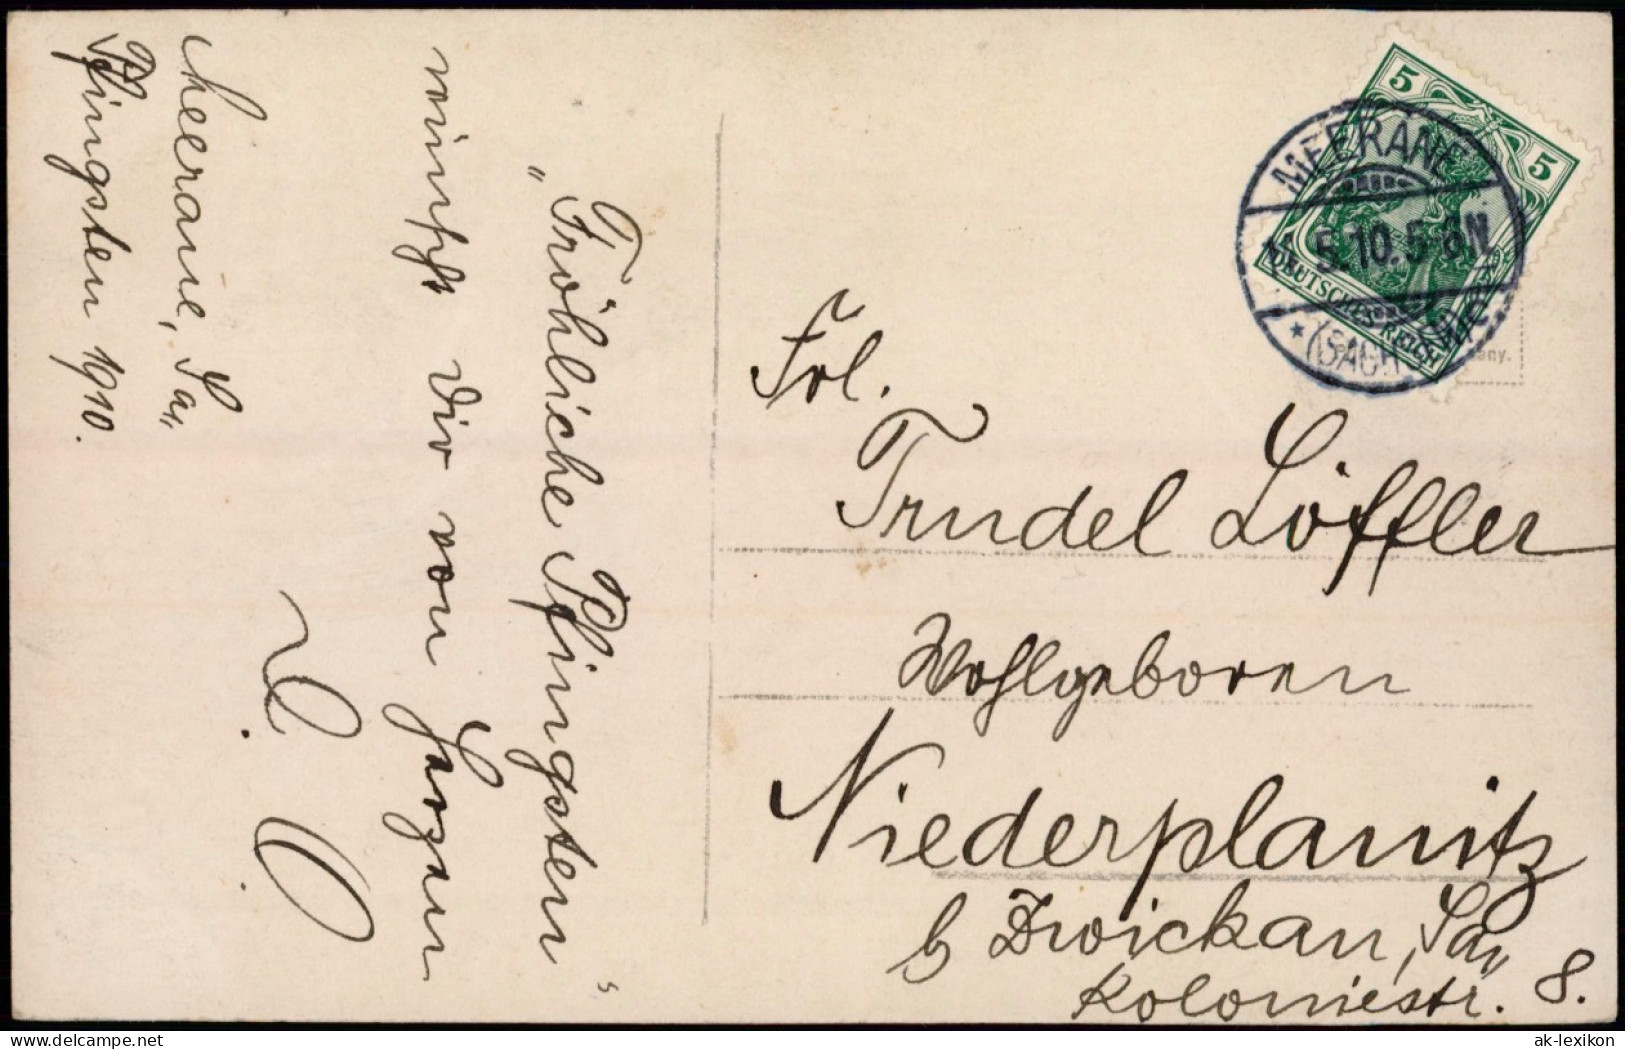 Meerane, Sa,,
Pfingsten 1910.
„Fröhliche Pfingsten“
wünscht dir von Herzen
D. O.
5
5
DEUTSCHES REICH
MEERANE
5.10.5-6N
* (SACHSEN)
Frl.
Trudel Löffler
Wohlgeboren
Niederplanitz
b Zwickau, Sa,,
Koloniestr. 8.
ak-lexikon